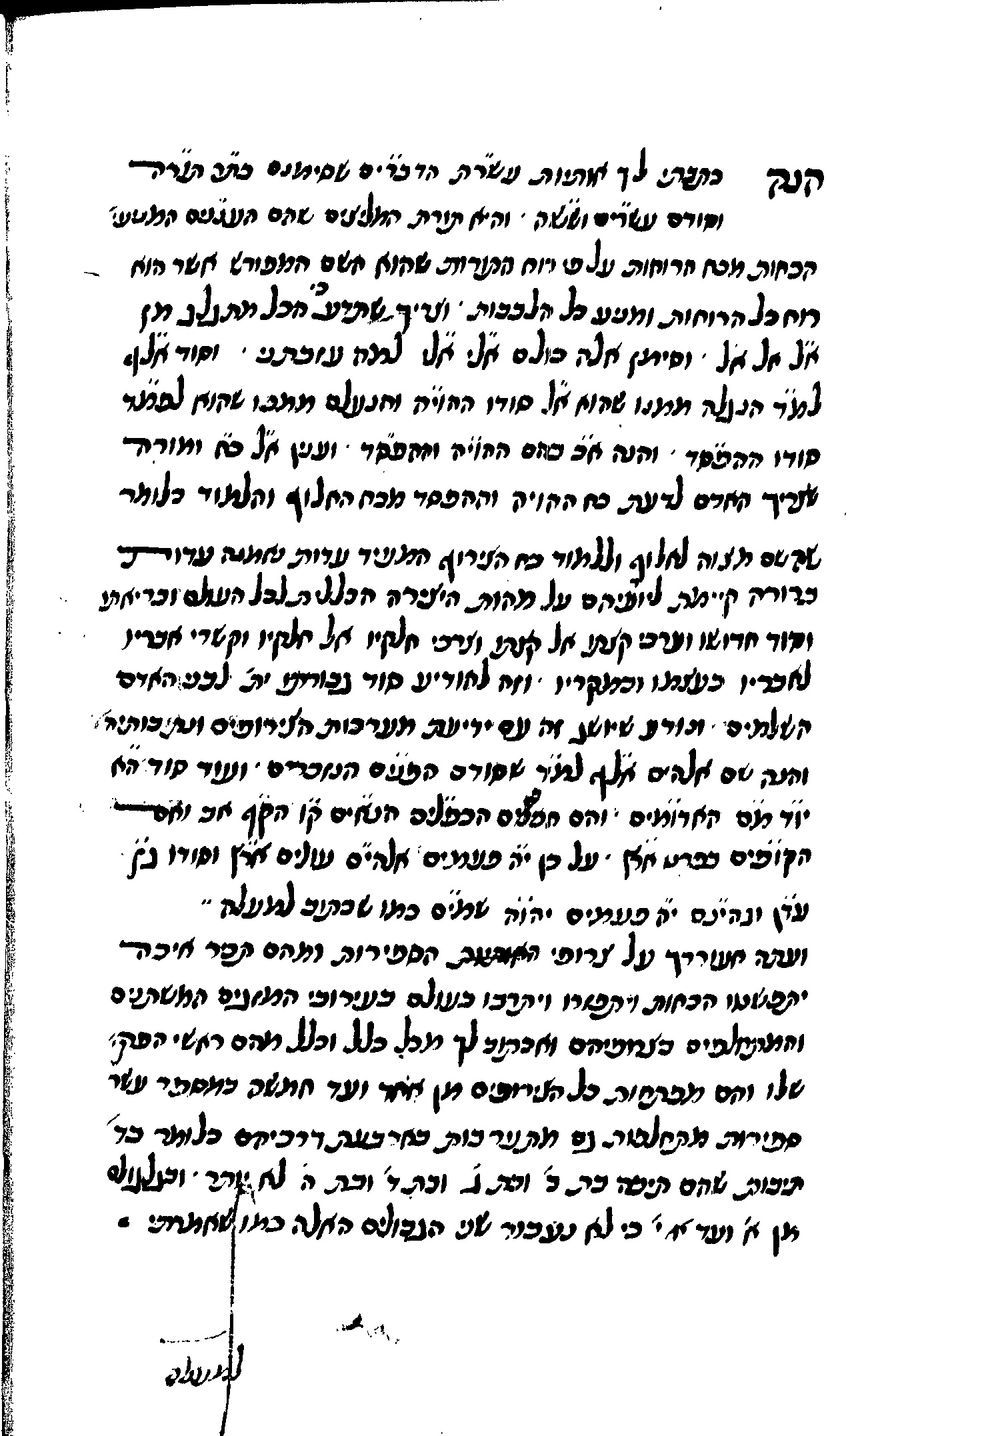 קנק כתבתי לך אותיות עשר״ת הדבר״ים שסימנם כת״ב תור״ה
וסודם עשר״ים וששה · והיא תורת המליצים שהם העצמים המניעי׳
הכחות מכח הרוחות על פי רוח הקדות שהוא השם המפורש אשר הוא
רוח כל הרוחות ומניע כל הלבבות · וצריך שתדע כי הכל מתגלגל מן
א״ל אל אל · וסימן אלה כולם אלי אלי למה עזבתני · וסוד אלף
למ״ד הנגלה ממנו שהוא א״ל סודו ההויה והנעלם ממנו שהוא לפמ״ד
סודו ההפסד · והנה א״ב בהם ההויה וההפסד · וענין א״ל כא ומורה
שצריך האדם לדעת כח ההויה וההפסד מכח האלוף והלמוד כלומר
שהשם מצוה לאלוף וללמוד כח הצירוף המגיד עדות נאמנה עדות
ברורה קיימת ליודעיהם על מהות היצירה הכללית לכל העולם ובריאתו
וסוד חדושו וערכי קצתו אל קצתו וערכי חלקיו אל חלקיו וקשרי אבריו
לאבריו בעצמו ובמקריו · וזה להודיע סוד גבורתו ית׳ לבני האדם
השלמים · ונודע שיושג זה עם ידיעת מערכות הצירופים ונתיבותיה׳
והנה שם אלהים אלף למ״ד שסודם הפנים הנזכרים · ועוד סוד ה״א
יו״ד מ״ם האדומים · והם חמשים הכפלים הנאים ק״ו הק״ף אב ואם
הקופים בפרט א״א · על כן י״ה פעמים אלה״ים עולים אר״ץ וסודו ג״ן
עד״ן וגהי״נם י״ה פעמים יהוה שמ״ים כמו שכתוב למעלה ״
ועתה אעוררך על צרופי הספירות ומהם תכיר איכה
יתפשטו הכחות ויתפארו ויתרבו בעולם בעירובי המזגים המשתנים
והמתחלפים בצרופיהם ואכתוב לך מכל כלל וכלל מהם ראשי הפרק׳
שלו והם מפתחות כל הצירופים מן אחד ועד חמשה במספר עשר
ספירות מתחלפות גם מתערבות בארבעת דרכיהם כלומר בד׳
תיבות שהם תיבה בת ב׳ ובת ג׳ ובת ד׳ ובת ה׳ לא יותר · ובגלגולם
מן א׳ ועד י׳ כי לא נעבור שני הגבולים האלה כמו שאמרתי ·
למעלה